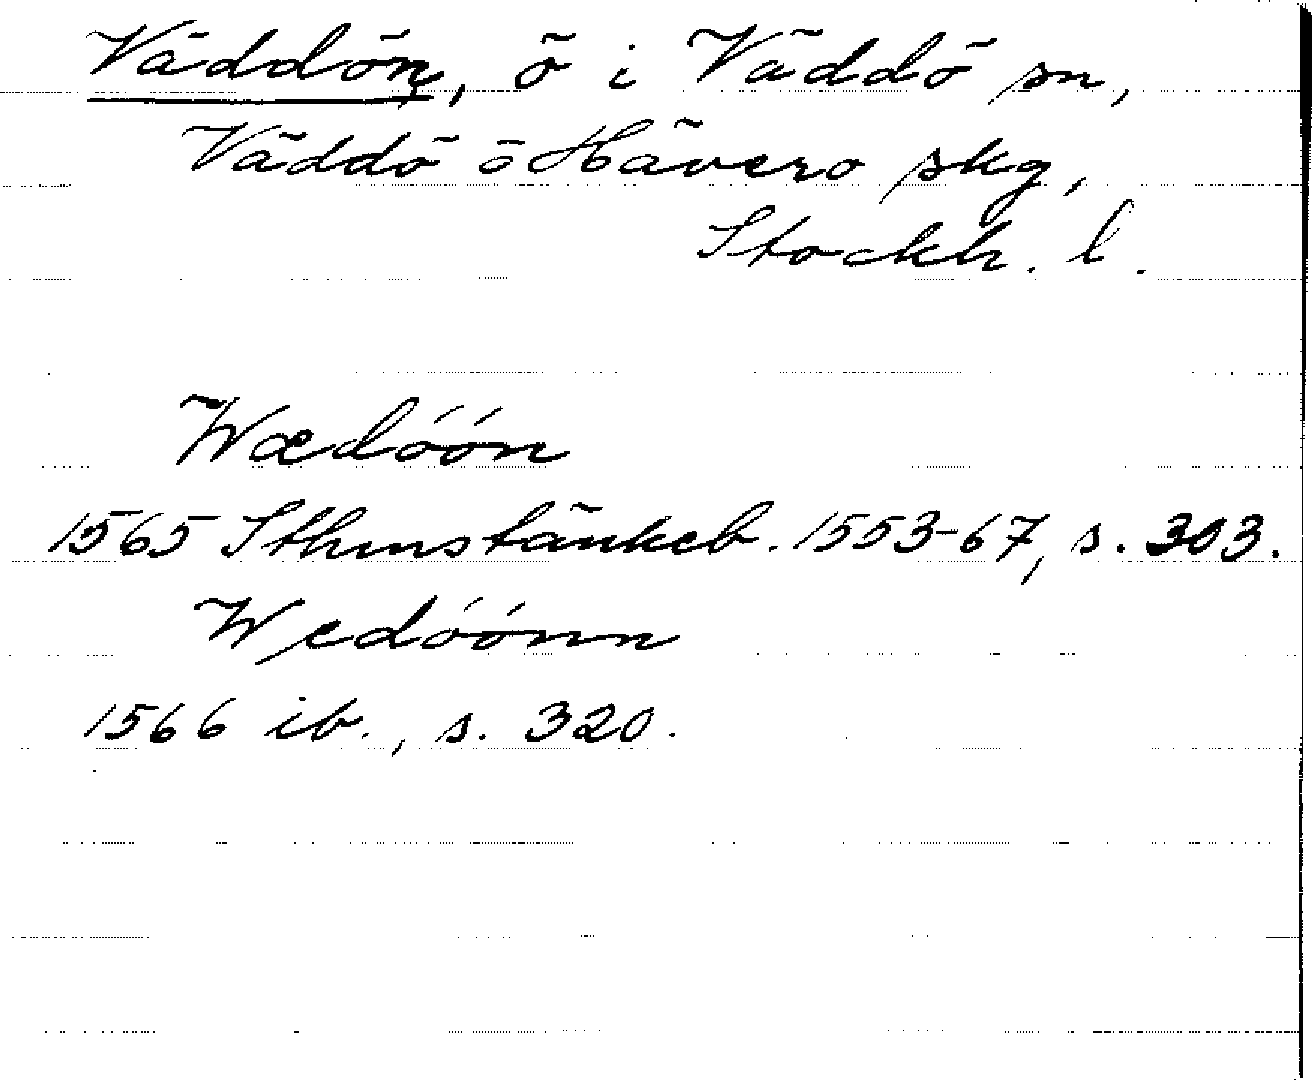 Väddön, ö i Väddö sn,
Väddö o Häverö skg,
Stockh. l.
Wædóón
1565 Sthmstänkeb. 1553-67, s. 303.
Wedóónn
1566 ib., s. 320.